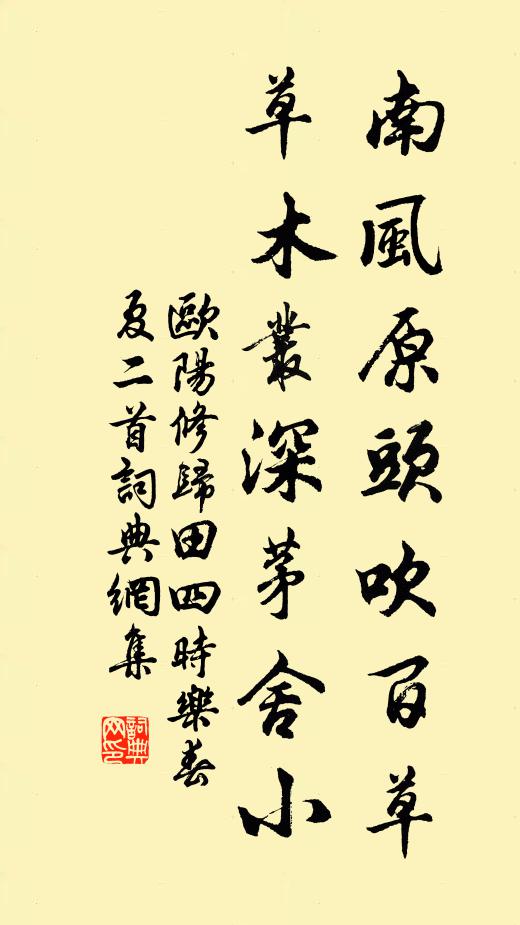 南風原頭吹百草
草木叢深茅舍小
歐陽修歸田四時樂春
夏二首詞典網集
詞典
网印